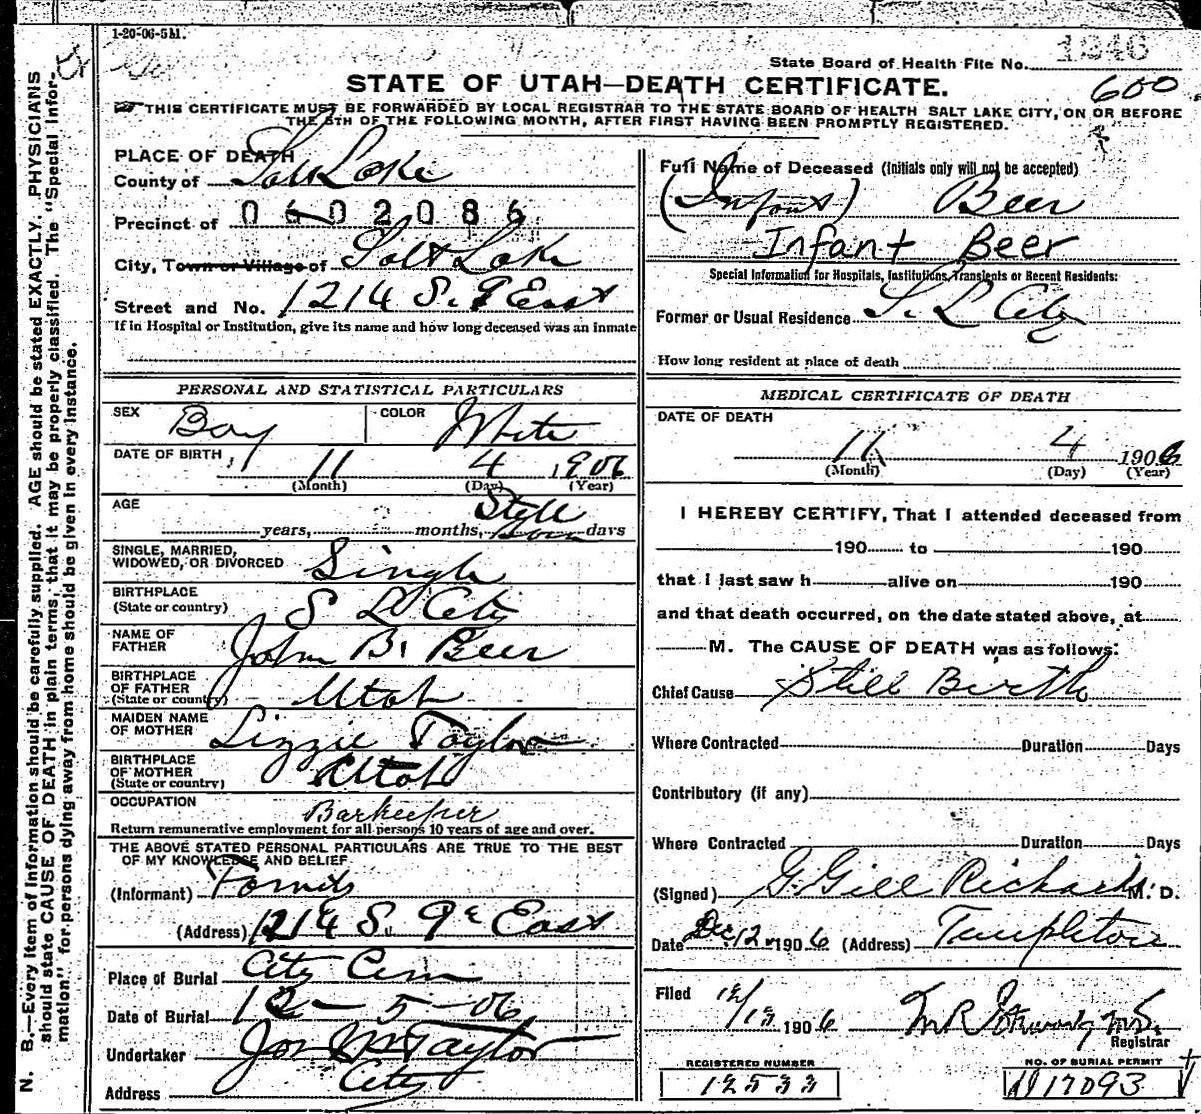 1-20-06-5M.
1246
State Board of Health File No.
600
STATE OF UTAH—DEATH CERTIFICATE.
THIS CERTIFICATE MUST BE FORWARDED BY LOCAL REGISTRAR TO THE STATE BOARD OF HEALTH SALT LAKE CITY, ON OR BEFORE
THE 5TH OF THE FOLLOWING MONTH, AFTER FIRST HAVING BEEN PROMPTLY REGISTERED.
N. B.—Every item of information should be carefully supplied. AGE should be stated EXACTLY. PHYSICIANS
should state CAUSE OF DEATH in plain terms, that it may be properly classified. The "Special Infor-
mation" for persons dying away from home should be given in every instance.
PLACE OF DEATH
County of Salt Lake
Precinct of 0602086
City, Town or Village of Salt Lake
Street and No. 1214 S. 9 East
If in Hospital or Institution, give its name and how long deceased was an inmate
Full Name of Deceased (Initials only will not be accepted)
(Infant) Beer
Infant Beer
Special Information for Hospitals, Institutions, Transients or Recent Residents:
Former or Usual Residence S. L City
How long resident at place of death
PERSONAL AND STATISTICAL PARTICULARS
SEX Boy COLOR White
DATE OF BIRTH 11 4 1906
(Month) (Day) (Year)
AGE Still
years, months, Born days
SINGLE, MARRIED,
WIDOWED, OR DIVORCED Single
BIRTHPLACE
(State or country) S L City
NAME OF
FATHER John B. Beer
BIRTHPLACE
OF FATHER
(State or country) Utah
MAIDEN NAME
OF MOTHER Lizzie Taylor
BIRTHPLACE
OF MOTHER
(State or country) Utah
OCCUPATION Barkeeper
Return remunerative employment for all persons 10 years of age and over.
THE ABOVE STATED PERSONAL PARTICULARS ARE TRUE TO THE BEST
OF MY KNOWLEDGE AND BELIEF
(Informant)
(Address) 1214 S. 9th East
Place of Burial City Cem
Date of Burial 12-5-06
Undertaker Jos Wm Taylor
Address City
MEDICAL CERTIFICATE OF DEATH
DATE OF DEATH
11 4 1906
(Month) (Day) (Year)
I HEREBY CERTIFY, That I attended deceased from
190 to 190
that I last saw h alive on 190
and that death occurred, on the date stated above, at
M. The CAUSE OF DEATH was as follows:
Chief Cause Still Birth
Where Contracted Duration Days
Contributory (if any)
Where Contracted Duration Days
(Signed) G. Gill Richards M. D.
Date Dec 12 1906 (Address) Templeton
Filed 12/13 1906
Registrar
REGISTERED NUMBER
12533
NO. OF BURIAL PERMIT
17093